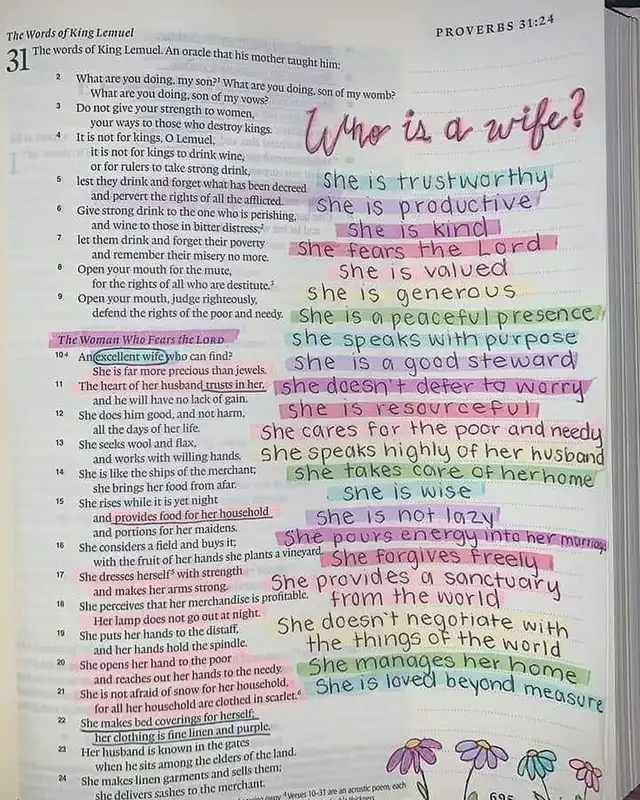 The Words of King Lemuel
PROVERBS 31:24
31 The words of King Lemuel. An oracle that his mother taught him:
2 What are you doing, my son?¹ What are you doing, son of my womb?
What are you doing, son of my vows?
3 Do not give your strength to women,
your ways to those who destroy kings.
4 It is not for kings, O Lemuel,
it is not for kings to drink wine,
or for rulers to take strong drink,
5 lest they drink and forget what has been decreed
and pervert the rights of all the afflicted.
6 Give strong drink to the one who is perishing,
and wine to those in bitter distress;²
7 let them drink and forget their poverty
and remember their misery no more.
8 Open your mouth for the mute,
for the rights of all who are destitute.³
9 Open your mouth, judge righteously,
defend the rights of the poor and needy.
The Woman Who Fears the LORD
10⁴ An excellent wife who can find?
She is far more precious than jewels.
11 The heart of her husband trusts in her,
and he will have no lack of gain.
12 She does him good, and not harm,
all the days of her life.
13 She seeks wool and flax,
and works with willing hands.
14 She is like the ships of the merchant;
she brings her food from afar.
15 She rises while it is yet night
and provides food for her household
and portions for her maidens.
16 She considers a field and buys it;
with the fruit of her hands she plants a vineyard.
17 She dresses herself⁵ with strength
and makes her arms strong.
18 She perceives that her merchandise is profitable.
Her lamp does not go out at night.
19 She puts her hands to the distaff,
and her hands hold the spindle.
20 She opens her hand to the poor
and reaches out her hands to the needy.
21 She is not afraid of snow for her household,
for all her household are clothed in scarlet.⁶
22 She makes bed coverings for herself;
her clothing is fine linen and purple.
23 Her husband is known in the gates
when he sits among the elders of the land.
24 She makes linen garments and sells them;
she delivers sashes to the merchant.
Who is a wife?
She is trustworthy
She is productive
She is kind
She fears the Lord
She is valued
she is generous
She is a peaceful presence
she speaks with purpose
she is a good steward
she doesn't defer to worry
she is resourceful
She cares for the poor and needy
She speaks highly of her husband
she takes care of her home
she is wise
She is not lazy
She pours energy into her marriage
She forgives freely
She provides a sanctuary
from the world
She doesn't negotiate with
the things of the world
She manages her home
She is loved beyond measure
⁴Verses 10–31 are an acrostic poem, each
695